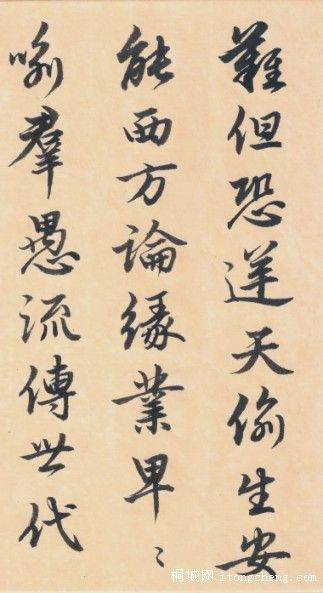 難但恐逆天偷生安
能西方論緣業卑〻
喻羣愚流傳世代
桐城网 itongcheng.com